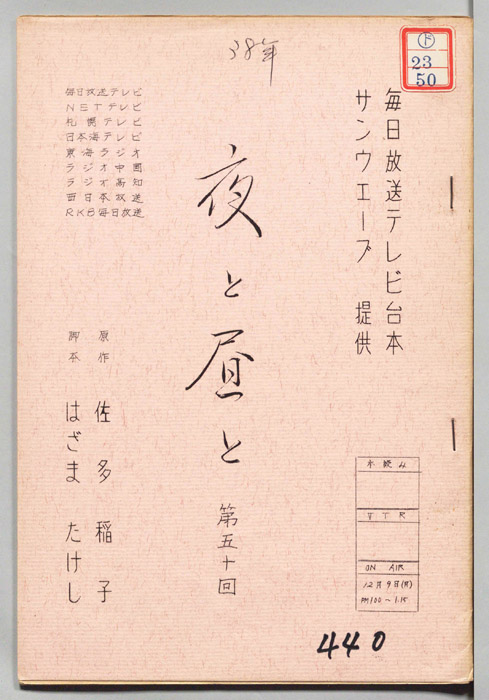 38年
ド
23
50
毎日放送テレビ台本
サンウエーブ 提供
毎日放送テレビ
NETテレビ
札幌テレビ
日本海テレビ
東海ラジオ
ラジオ中国
ラジオ高知
西日本放送
RKB毎日放送
夜と昼と
第五十回
原作 佐多稲子
脚本 はざま たけし
本読み
VTR
ON AIR
12月9日(月)
PM1:00~1:15
440